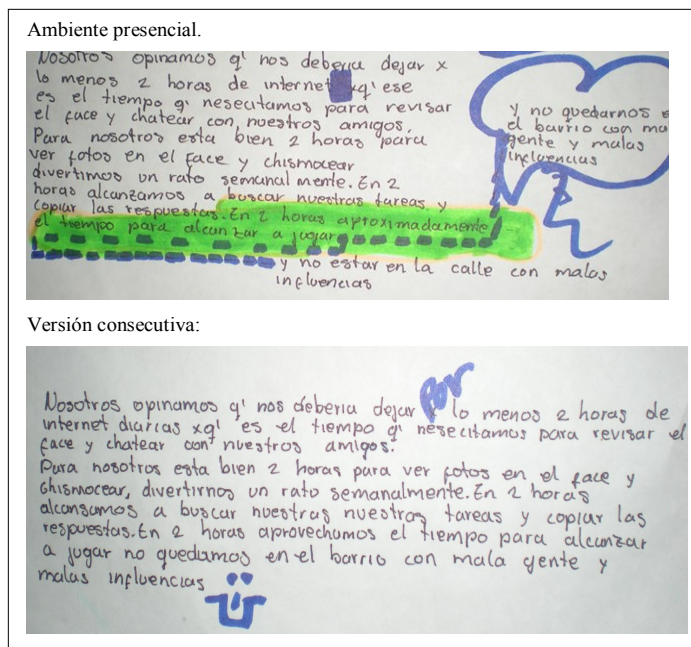 Ambiente presencial.
Nosotros opinamos q' nos deberia dejar x
lo menos 2 horas de internet xq' ese
es el tiempo q' nesecitamos para revisar
el face y chatear con nuestros amigos.
Para nosotros esta bien 2 horas para
ver fotos en el face y chismocear
divertimos un rato semanal mente. En 2
horas alcanzamos a buscar nuestras tareas y
copiar las respuestas. En 2 horas aproximadamente
el tiempo para alcanzar a jugar
y no estar en la calle con malas
influencias
y no quedarnos
el barrio con
gente y malas
influencias
Versión consecutiva:
Nosotros opinamos q' nos deberia dejar Por lo menos 2 horas de
internet diarias xq' es el tiempo q' nesecitamos para revisar el
face y chatear con nuestros amigos.
Para nosotros esta bien 2 horas para ver fotos en el face y
chismocear, divertirnos un rato semanalmente. En 2 horas
alcansamos a buscar nuestras nuestras tareas y copiar las
respuestas. En 2 horas aprovechamos el tiempo para alcanzar
a jugar no quedamos en el barrio con mala gente y
malas influencias